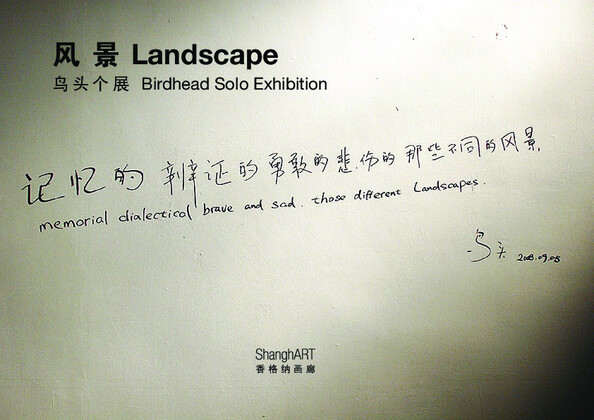 风景 Landscape
鸟头个展 Birdhead Solo Exhibition
记忆的 辩证的勇敢的悲伤的那些不同的风景.
memorial dialectical brave and sad. those different Landscapes.
鸟头 2008.09.05
ShanghART
香格纳画廊